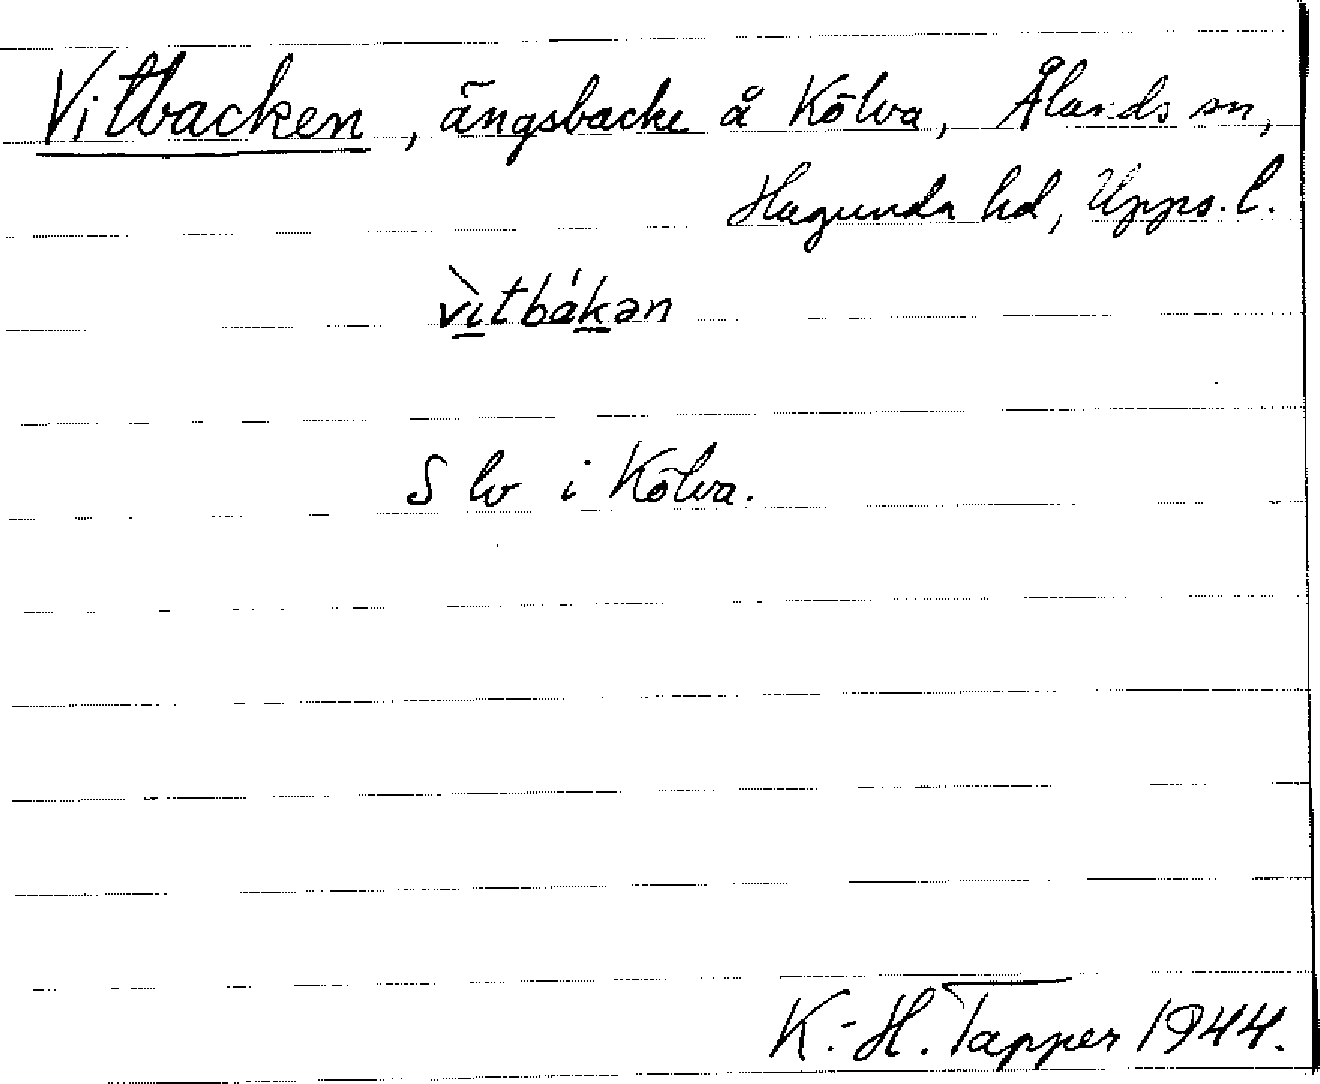 Vitbacken, ängsbacke å Kölva, Ålands sn,
Hagunda hd, Upps. l.
vìtbákən
S lv i Kölva.
K.-H. Tapper 1944.